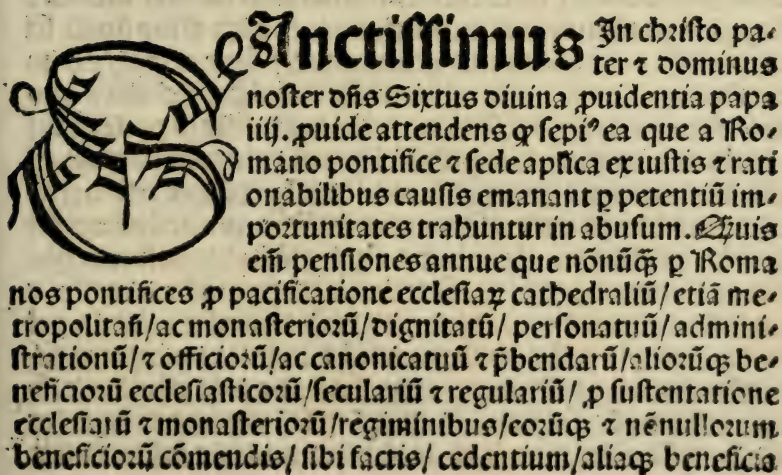 SAnctissimus In christo pa⸗
ter ⁊ dominus
noster dn̄s Sixtus diuina ꝓuidentia papa
iiij. ꝓuide attendens ꝙ sepiꝰ ea que a Ro⸗
mano pontifice ⁊ sede apl̄ica ex iustis ⁊ rati
onabilibus causis emanant ꝑ petentiū im⸗
portunitates trahuntur in abusum. Quis
em̄ pensiones annue que nōnūꝙ̄ ꝑ Roma
nos pontifices ꝓ pacificatione ecclesiaꝝ cathedraliū/ etiā me⸗
tropolitan̄/ac monasterioꝛū/dignitatū/ personatuū/admini⸗
strationū/⁊ officioꝛū/ac canonicatuū ⁊ p̄bendarū/alioꝛūqꝫ be⸗
neficioꝛū ecclesiasticoꝛū/seculariū ⁊ regulariū/ ꝓ sustentatione
ecclesiarū ⁊ monasterioꝛū/regiminibus/eoꝛūqꝫ ⁊ nēnullorum
beneficioꝛū cōmendis/ sibi factis/ cedentium/aliaqꝫ beneficia